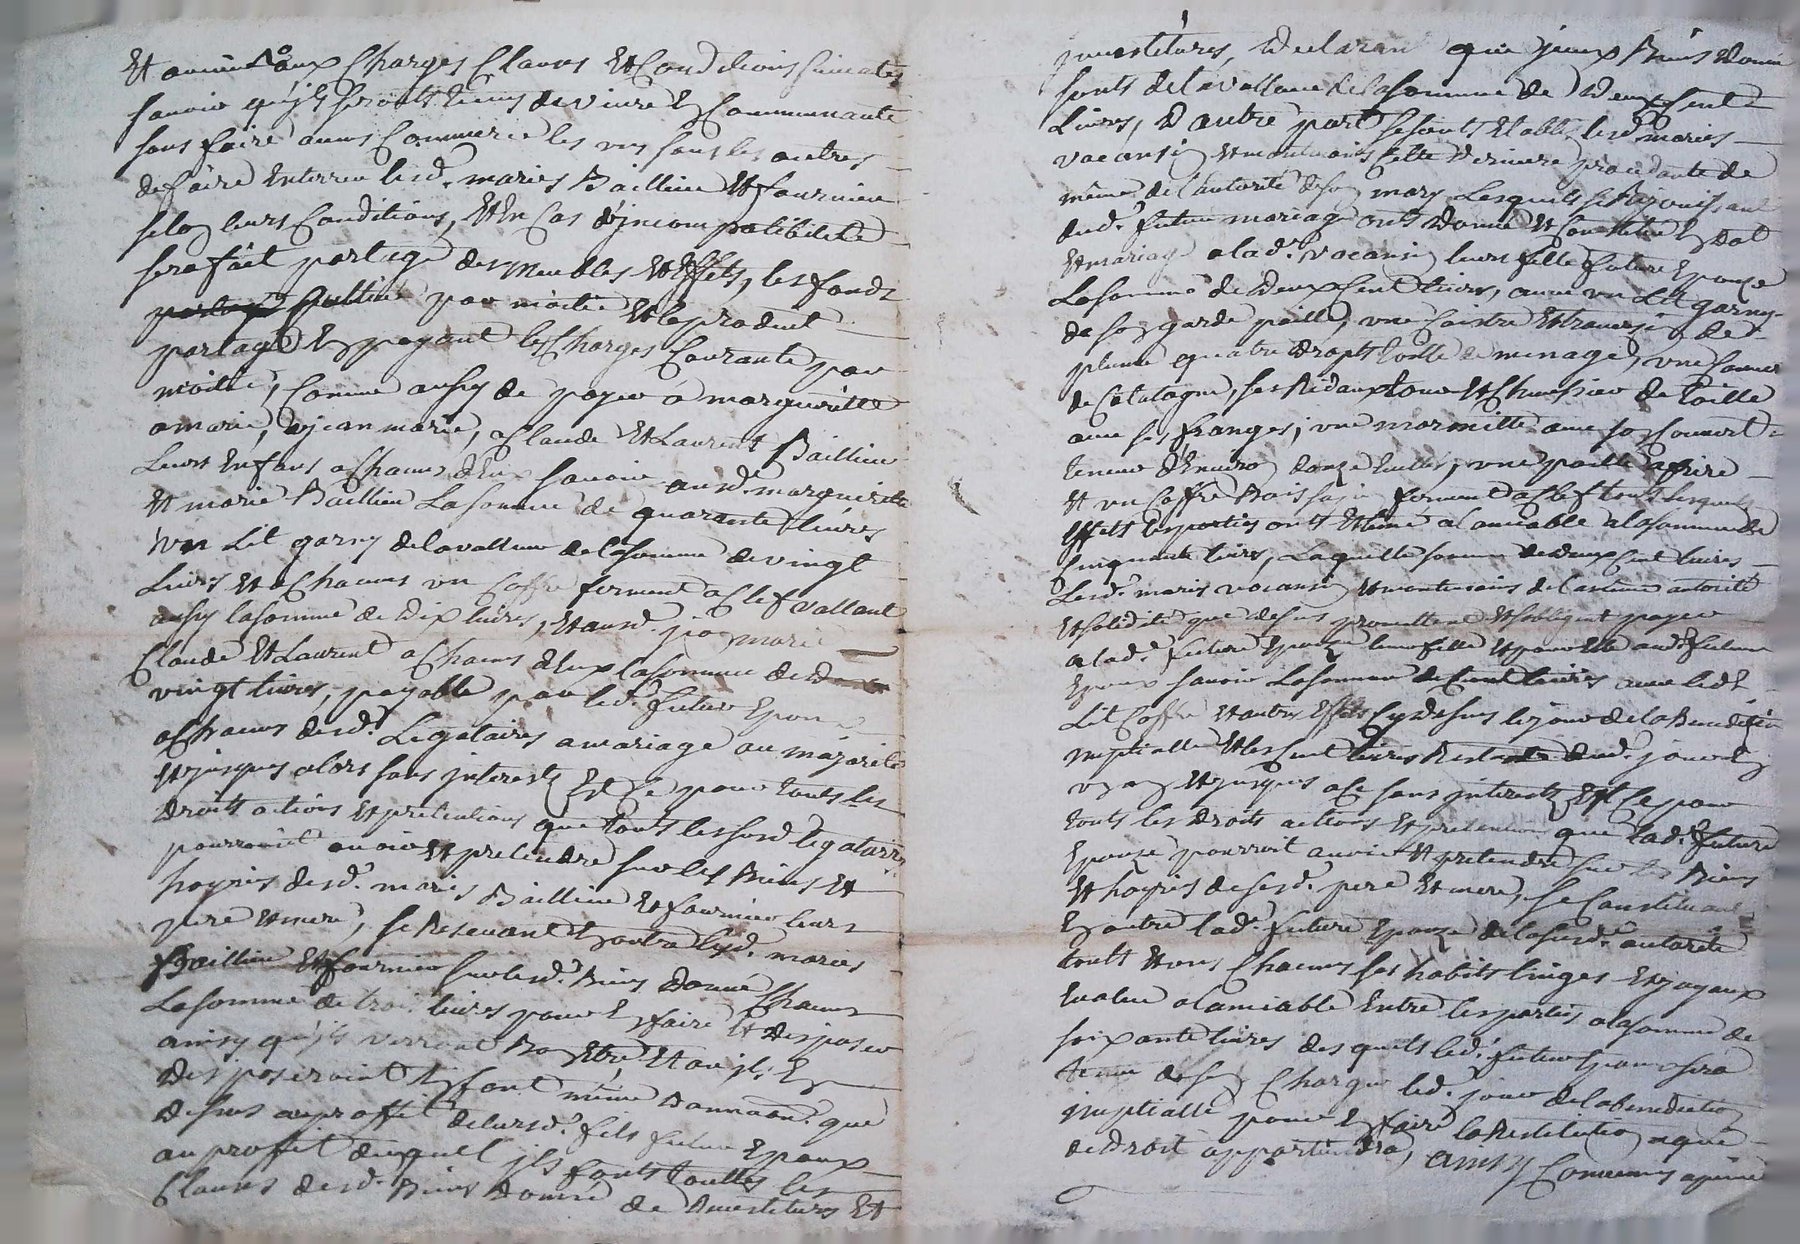 Et avenir aux Charges Clauses Et Conditions suivantes
savoir qu'jls seront tenus de vivre En Communauté
sans faire aucun Commerce les uns sans les autres
de faire Enterrer lesd. mariés Baillieu Et fournier
selon leurs Conditions, Et En Cas d'jncompatibilité
sera fait partage des meubles Et Effets, les fonds
par moitié Et le produit
partagé En payant les Charges Courante par
moitié, Comme aussy de payer a margueritte
a marie, a jean marie, a Claude Et Laurent Baillieu
Leurs Enfans a Chacun d'Eux savoir auxd. margueritte
Et marie Baillieu La somme de quarante livres
un Lit garny de la valleur de la somme de vingt
Livres Et a Chacune un Coffre fermant a Clef vallant
aussy la somme de Dix livres, Et auxd. jean marie
Claude Et Laurent a Chacun d'Eux la somme de
vingt livres, payable par led. futur Epoux
a Chacun desd. Legataires a mariage ou majorité
Et jusques alors sans jnterests Et Ce pour touts les
droits actions Et pretentions que touts les susd. legataires
pourroient avoir Et pretendre sur les Biens Et
hoyries desd. mariés Baillieu Et fournier leurs
pere Et mere, se Reservant En outre lesd. mariés
Baillieu Et fournier sur lesd. Biens donné Chacun
La somme de trois livres pour En faire Et disposer
ainsy qu'jls verront Bon Etre Et ou jls En
disposeroient En font même donnaon. que
dessus au proffit de leursd. fils futur Epoux
au profit duquel jls font touttes les
Clauses desd. Biens donné de Devestitures Et
jnvestitures, Declarant que jceux Biens donné
sonts de la valleur de la somme de Deux Cent
Livres, D'autre part se sonts Etablis lesd. mariés
vacansin Et cette Derniere procedante de
même de l'autorité de son mary Lesquels se Rejouissant
dud. futur mariage onts Donné Et Constitué En Dot
Et mariage a lad. vacansin leurs fille future Epouze
La somme de Deux Cent livres, avec un Lit garny
de son garde paille, une Coestre Et traversin de
plume quatre draps toille de menage, une
de Catalogne, ses Ridaux tour Et Chevessier de toille
avec ses franges, une marmitte avec son Couvert
teneur d'Environ donze livres, une poille a frire
Et un Coffre Bois sapin fermant a Clef touts lesquels
Effets les parties onts Estimé a l'amiable a la somme de
Cinquante livres, Laquelle somme de deux Cent livres
Lesd. mariés vacansin Et de la même autorité
Et solidité que dessus promettent Et s'obligent payer
a lad. future Epouze leur fille Et pour Elle aud. futur
Epoux savoir La somme de Cent livres avec led.
Lit Coffre Et autres Effets Cy dessus le jour de la Benediction
nuptialle Et les Cent livres Restante dud. jour En
un an Et jusques a Ce sans jnterests Et Ce pour
touts les droits actions Et pretentions que lad. future
Epouze pourroit avoir Et pretendre sur les Biens
Et hoyries de sesd. pere Et mere, se Constituant
En outre lad. future Epouze de la susd. autorité
touts Et uns Chacuns ses habits linges Et joyaux
Evalué a l'amiable Entre les parties a la somme de
soixante livres desquels led. futur Epoux sera
tenu de se Charger led. jour de la benediction
nuptialle pour En faire la Restitution a qui
de Droit appartiendra, ainsy Convenus